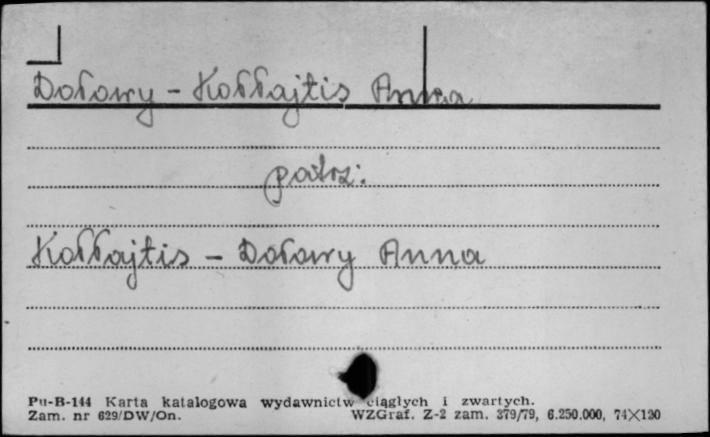 Dołowy - Kołłajtis Anna
patrz:
Kołłajtis - Dołowy Anna
Pu-B-144 Karta katalogowa wydawnictw ciągłych i zwartych.
Zam. nr 629/DW/On. WZGraf. Z-2 zam. 379/79, 6.250.000, 74X120